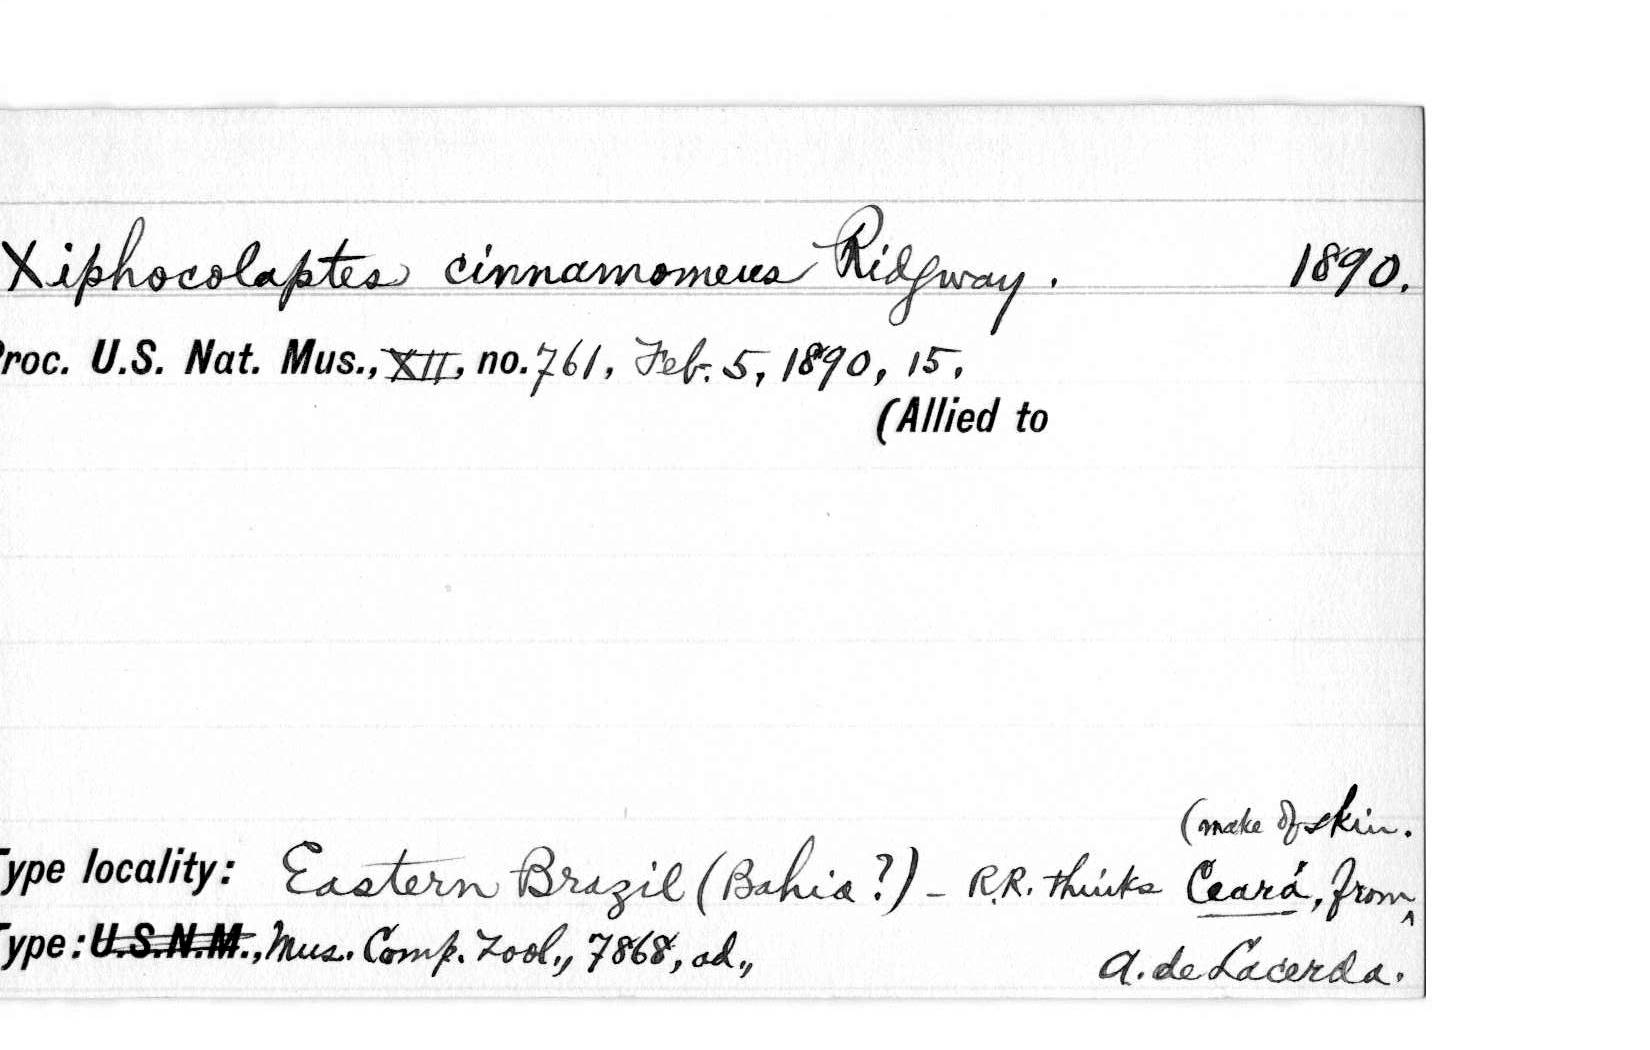 Xiphocolaptes cinnamomeus Ridgway. 1890.
Proc. U.S. Nat. Mus., XII, no. 761, Feb. 5, 1890, 15,
(Allied to
(make of skin.
Type locality: Eastern Brazil (Bahia?) – R.R. thinks Ceará, from ^
Type: U.S.N.M., Mus. Comp. Zool., 7868, ad.,, A. de Lacerda.